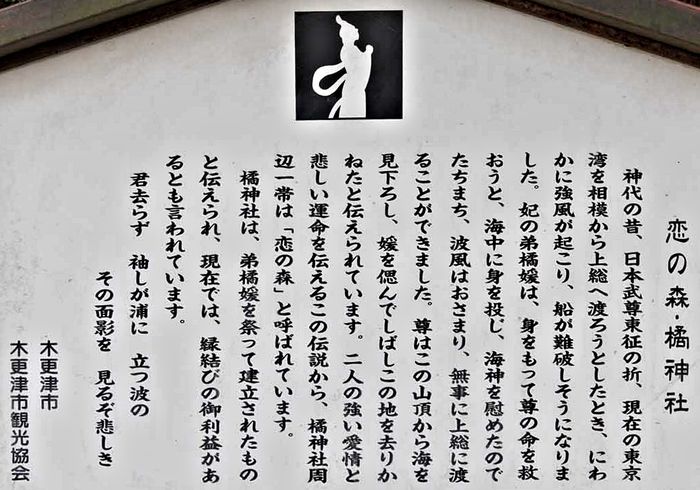 恋の森・橘神社
神代の昔、日本武尊東征の折、現在の東京
湾を相模から上総へ渡ろうとしたとき、にわ
かに強風が起こり、船が難破しそうになりま
した。妃の弟橘媛は、身をもって尊の命を救
おうと、海中に身を投じ、海神を慰めたので
たちまち、波風はおさまり、無事に上総に渡
ることができました。尊はこの山頂から海を
見下ろし、媛を偲んでしばしこの地を去りか
ねたと伝えられています。二人の強い愛情と
悲しい運命を伝えるこの伝説から、橘神社周
辺一帯は「恋の森」と呼ばれています。
橘神社は、弟橘媛を祭って建立されたもの
と伝えられ、現在では、縁結びの御利益があ
るとも言われています。
君去らず 袖しが浦に 立つ波の
その面影を 見るぞ悲しき
木更津市
木更津市観光協会